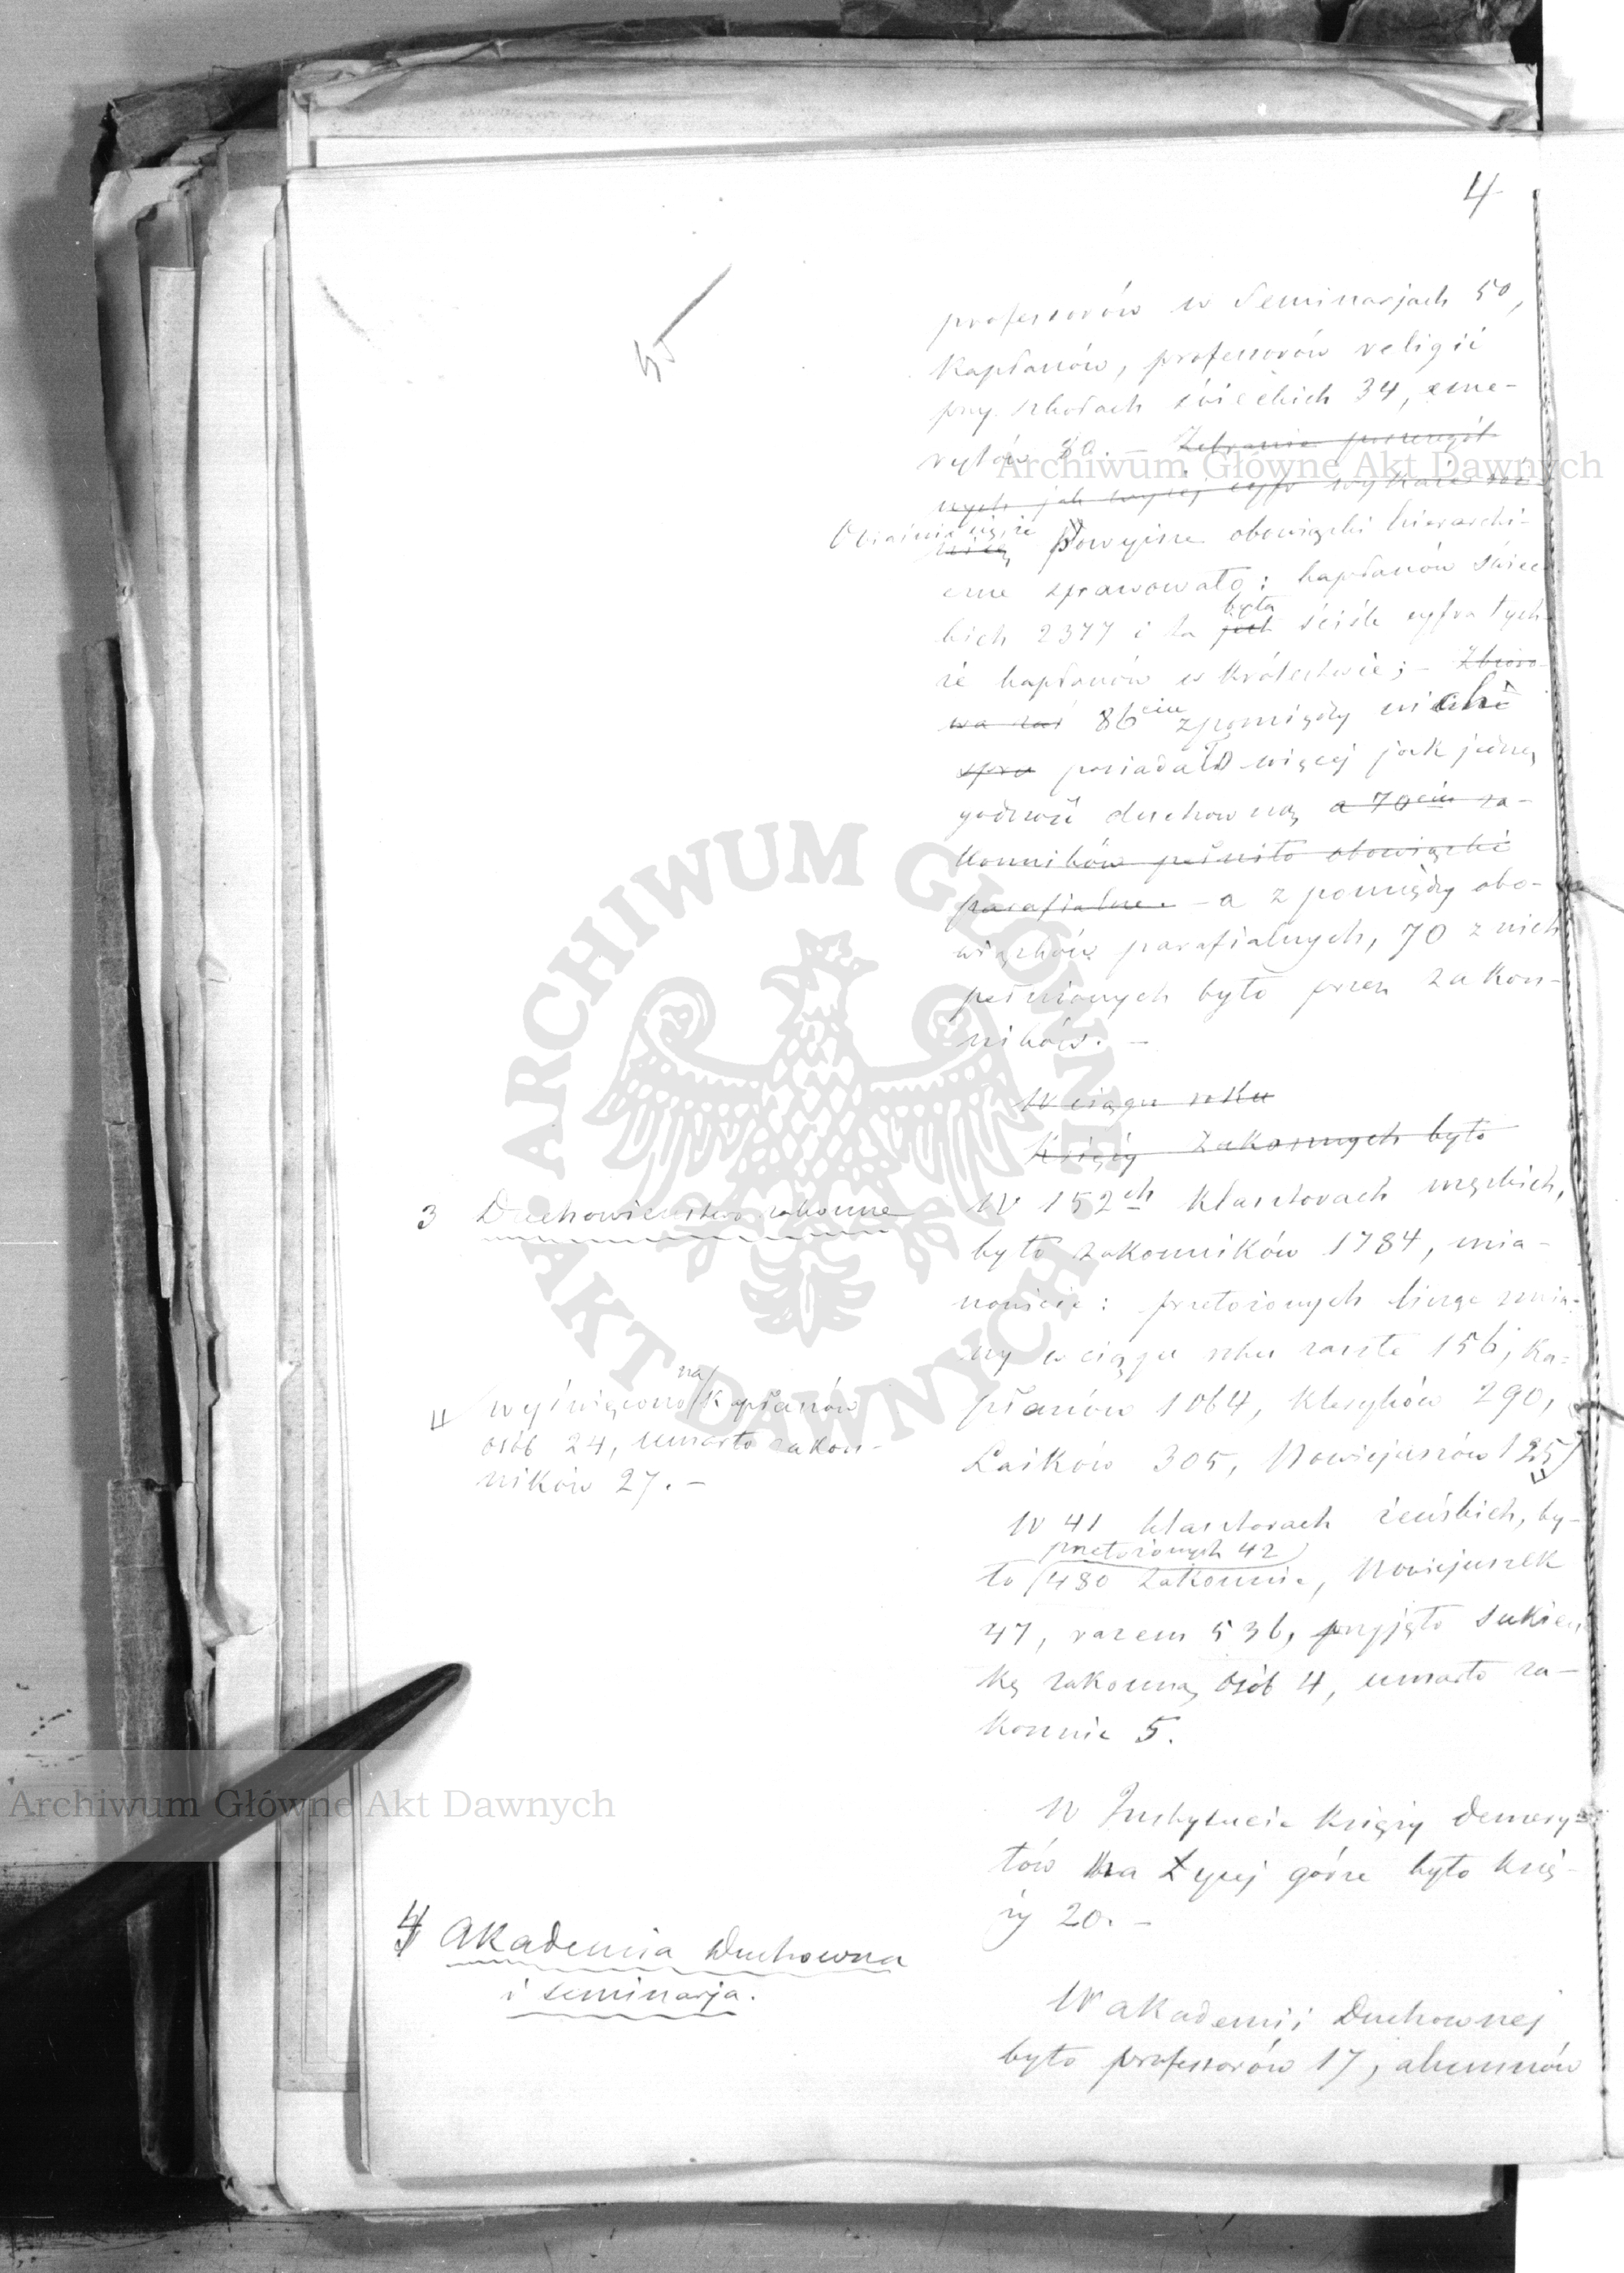 4
5
professorów w Seminarjach 50,
Kapłanów, professorów religii
przy szkołach świeckich 34, eme-
rytów 80. — Zebranie poszczegól-
nych jak wyżej cyfr wykaże
Powyższe obowiązki hierarchi-
czne sprawowało: kapłanów świec-
kich 2377 i ta była jest ściśle cyfra tych-
że kapłanów w Królestwie; —
86ciu zpomiędzy nich
posiadało więcej jak jedną
godność duchowną, a 70ciu za-
konników pełniło obowiązki
parafialne. — a z pomiędzy obo-
wiązków parafialnych, 70 z nich
pełnionych było przez zakon-
ników. —
W ciągu roku
Księży zakonnych było
3 Duchowieństwo zakonne
W 152ch Klasztorach męzkich,
było zakonników 1784, mia-
nowicie: przełożonych licząc zmia-
ny w ciągu roku zaszłe 156, Ka-
płanów 1064, Kleryków 290,
Laików 305, Nowicjuszów 125
wyświęcono na Kapłanów
osób 24, umarło zakon-
ników 27. —
W 41 klasztorach żeńskich, by-
przełożonych 42
ło 480 Zakonnic, Nowicjuszek
47, razem 536, przyjęło sukien-
kę zakonną osób 4, umarło za-
konnic 5.
W Instytucie Księży Demery-
tów na Łysej górze było księ-
ży 20. —
4 Akademia Duchowna
i seminarja.
W akademii Duchownej
było professorów 17, alumnów
Archiwum Główne Akt Dawnych
ARCHIWUM GŁÓWNE AKT DAWNYCH
Archiwum Główne Akt Dawnych